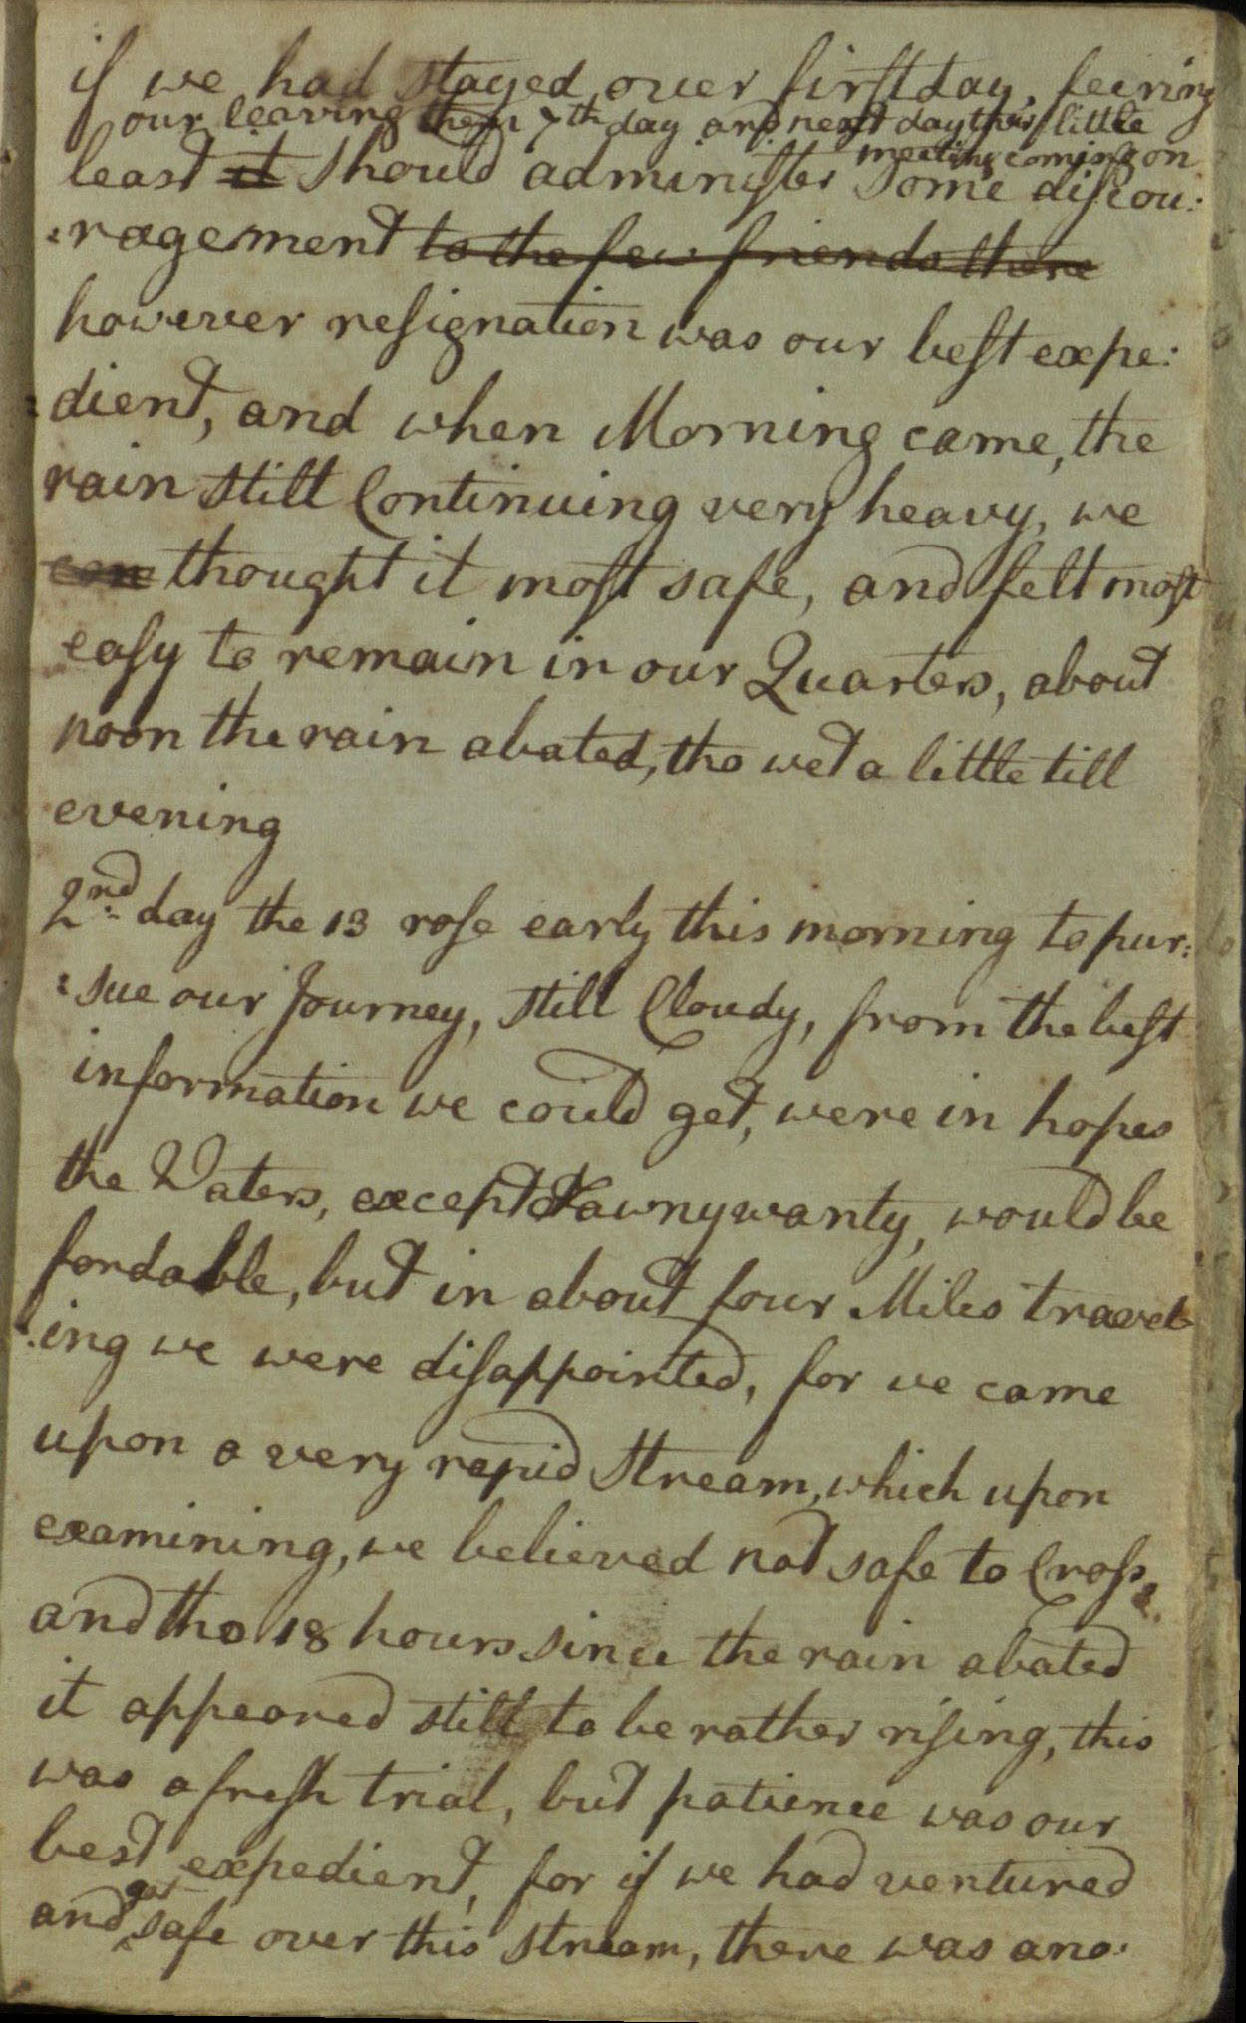 if we had stayed over first day, feering
our leaving them 7th day and next day their little
meeting coming on
least it should administer some discou:
:ragement to the few friends there
however resignation was our best expe:
:dient, and when Morning came, the
rain still Continuing very heavy, we
con thought it most safe, and felt most
easy to remain in our Quarters, about
noon the rain abated, tho wet a little till
evening
2nd day the 13 rose early this morning to pur:
:sue our Journey, still Cloudy, from the best
information we could get, were in hopes
the Waters, except Tawnywanty, would be
fordable, but in about four Miles travel
:ing we were disappointed, for we came
upon a very rapid Stream, which upon
examining, we believed not safe to Cross,
and tho 18 hours since the rain abated
it appeared still to be rather rising, this
was a fresh trial, but patience was our
best expedient, for if we had ventured
and got safe over this stream, there was ano: